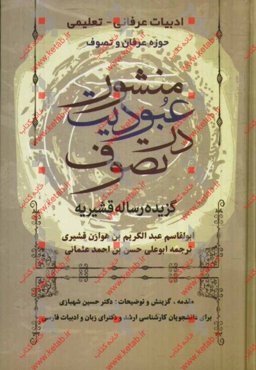 ادبیات عرفانی - تعلیمی
حوزه عرفان و تصوف
منشور
عبودیت
در
تصوف
گزیده رساله قشیریه
ابوالقاسم عبدالکریم بن هوازن قشیری
ترجمه ابوعلی حسن بن احمد عثمانی
مقدمه، گزینش و توضیحات: دکتر حسین شهبازی
برای دانشجویان کارشناسی ارشد و دکترای زبان و ادبیات فارسی
خانه کتاب
www.ketab.ir